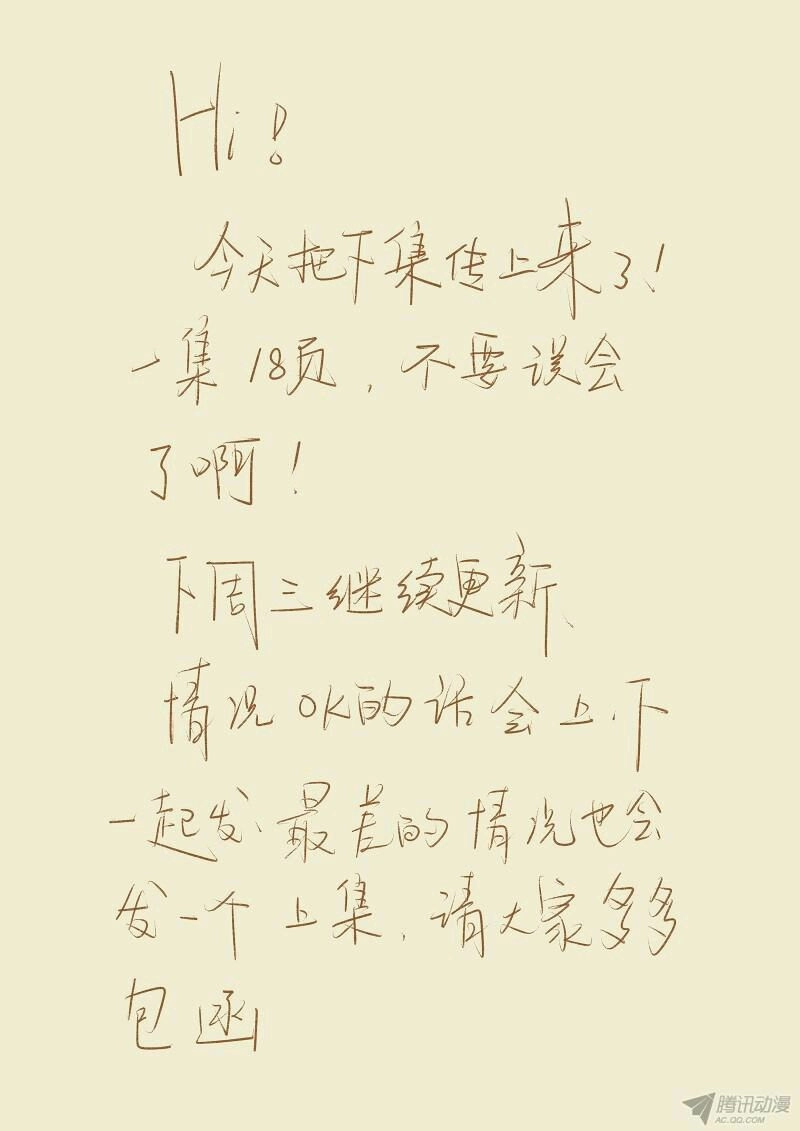 Hi!
今天把下集传上来了!
一集18页,不要误会
了啊!
下周三继续更新、
情况OK的话会上、下
一起发、最差的情况也会
发一个上集,请大家多多
包涵
腾讯动漫
AC.QQ.COM